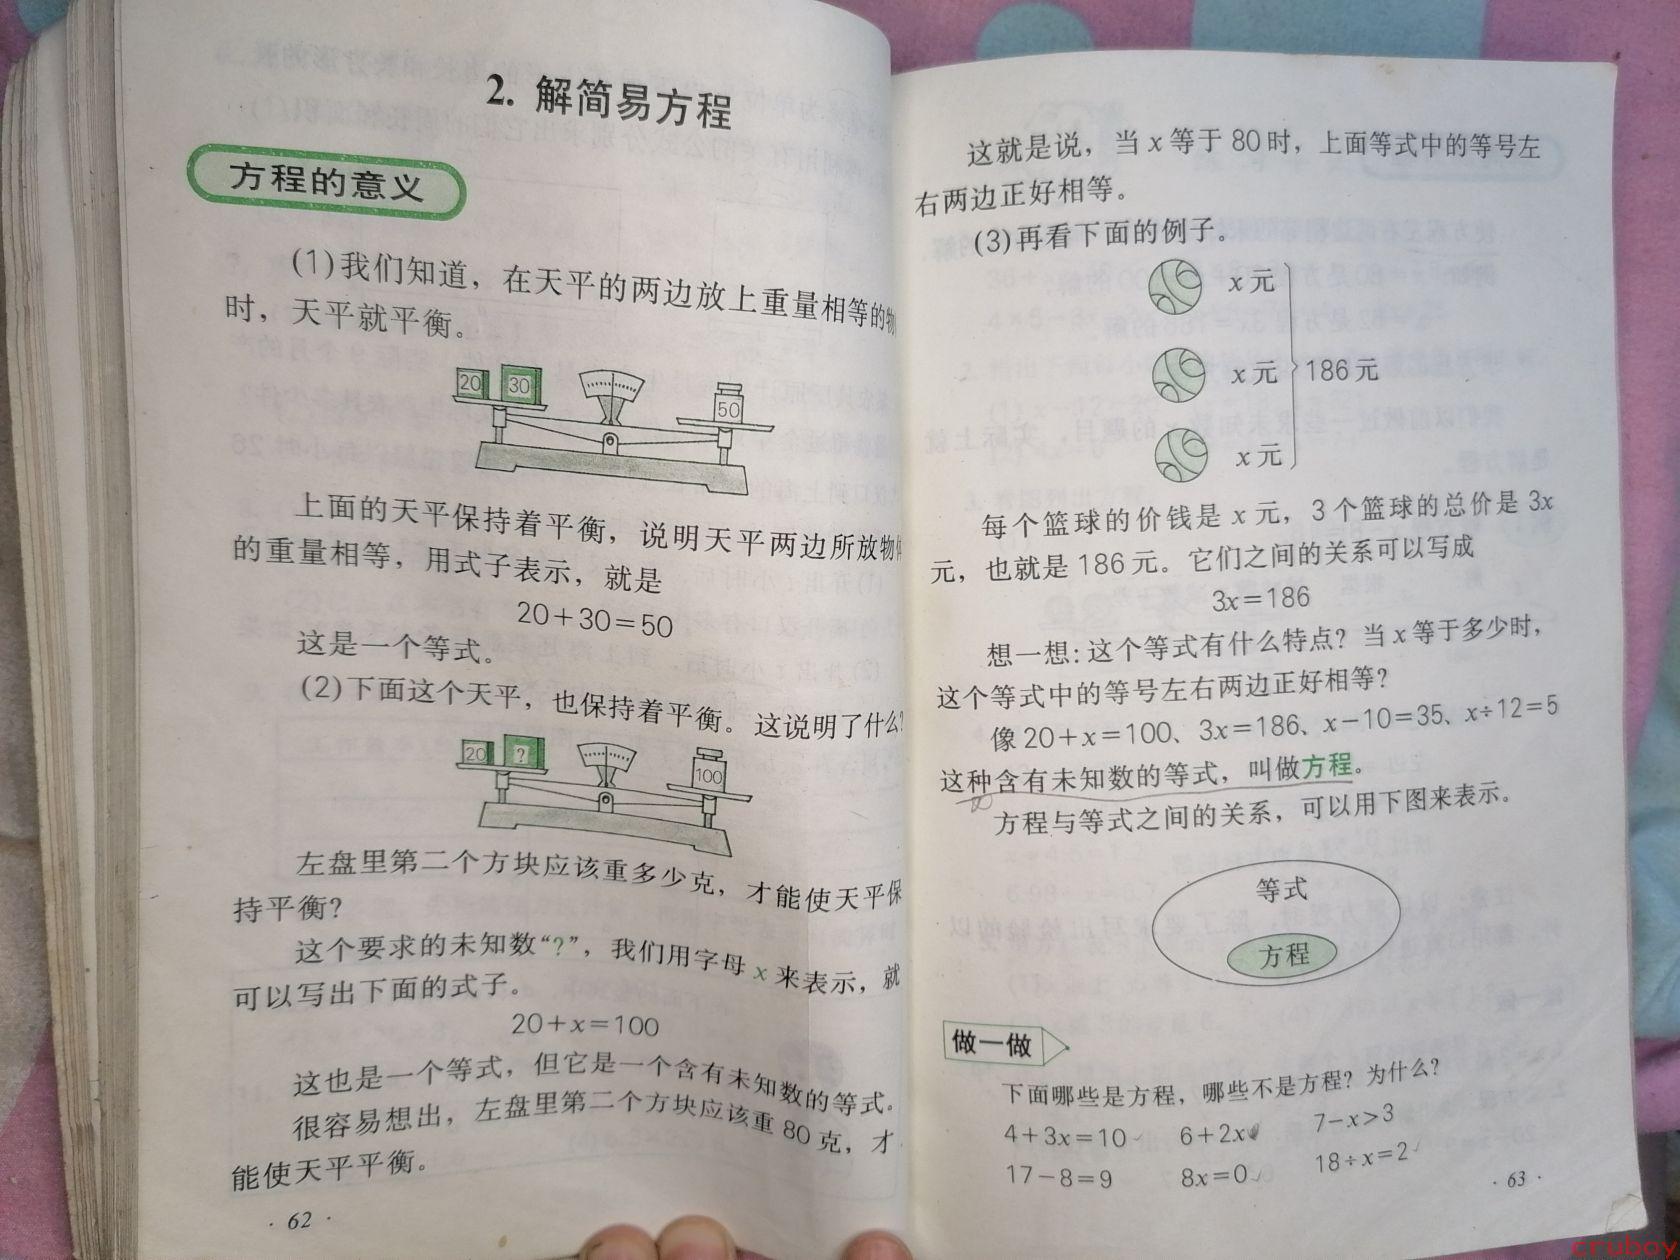 2. 解简易方程
方程的意义
(1)我们知道，在天平的两边放上重量相等的物
时，天平就平衡。
20 30
50
上面的天平保持着平衡，说明天平两边所放物
的重量相等，用式子表示，就是
20+30=50
这是一个等式。
(2)下面这个天平，也保持着平衡。这说明了什么?
20 ?
100
左盘里第二个方块应该重多少克，才能使天平保
持平衡?
这个要求的未知数“?”，我们用字母 x 来表示，就
可以写出下面的式子。
20+x=100
这也是一个等式，但它是一个含有未知数的等式。
很容易想出，左盘里第二个方块应该重 80 克，才
能使天平平衡。
· 62 ·
这就是说，当 x 等于 80 时，上面等式中的等号左
右两边正好相等。
(3)再看下面的例子。
x 元
x 元
186 元
x 元
每个篮球的价钱是 x 元，3 个篮球的总价是 3x
元，也就是 186 元。它们之间的关系可以写成
3x=186
想一想：这个等式有什么特点? 当 x 等于多少时，
这个等式中的等号左右两边正好相等?
像 20+x=100、3x=186、x-10=35、x÷12=5
这种含有未知数的等式，叫做方程。
方程与等式之间的关系，可以用下图来表示。
等式
方程
做一做
下面哪些是方程，哪些不是方程? 为什么?
4+3x=10 6+2x 7-x>3
17-8=9 8x=0 18÷x=2
· 63 ·
cruboy